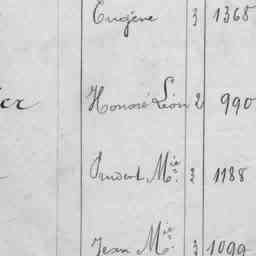 Eugène 3 1368
er Honoré Léon 2 990
Prudent Mie 2 1188
Jean Mie 3 1099